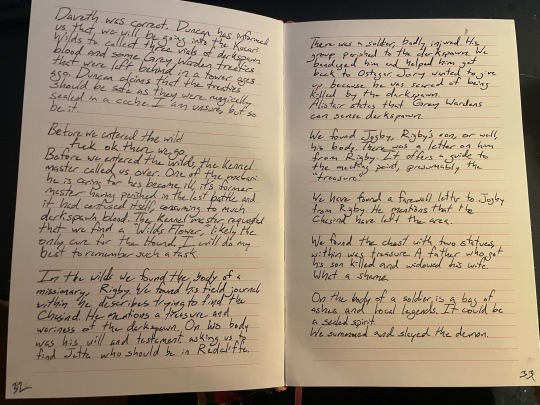 Daveth was correct. Duncan has informed
us that we will be going into the Kocari
Wilds to collect three vials of darkspawn
blood and some Grey Warden treaties
that were left behind in a tower ages
ago. Duncan claims that the treaties
should be safe as they were magically
sealed in a cache. I am unsure, but so
be it.
Before we entered the wild
fuck ok there we go.
Before we entered the wilds, the kennel
master called us over. One of the
he is caring for has become ill, it's former
master having perished in the last battle and
it had
consuming to much
darkspawn blood. The kennel master requested
that we find a "Wilds Flower", likely the
only cure for the hound, I will do my
best to remember such a task.
In the wilds we found the body of a
missionary, Rigby. We found his field journal
within he describes trying to find the
Chasind. He mentions a treasure and
wariness of the darkspawn. On his body
was his, will and testament asking us to
find Jetta who should be in Redcliffe.
32
There was a soldier, badly injured. His
group perished to the darkspawn. We
bandaged him and helped him get
back to Ostagar. Jory wanted to give
up because he was scared of being
killed by the darkspawn.
Alistair states that Grey Wardens
can sense darkspawn.
We found Jogby, Rigby's son, or well,
his body. There was a letter on him
from Rigby. It offers a guide to
the meeting point, presumably the
"treasure"
We have found a farewell letter to Jogby
from Rigby. He mentions that the
Chasind have left the area.
We found the chest with two statues,
within was treasure. A father who got
his son killed and widowed his wife.
What a shame.
On the body of a soldier, is a bag of
ashes and local legends. It could be
a sealed spirit.
We summoned and slayed the demon.
33